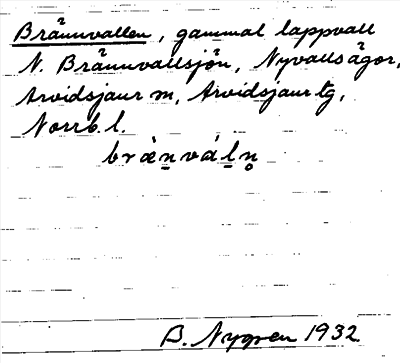 Brännvallen, gammal lappvall
N. Brännvallsjön, Nyvallsågor,
Arvidsjaur m, Arvidsjaur tg,
Norrb. l.
brä̀n̲vál̲n̥
B. Nygren 1932.